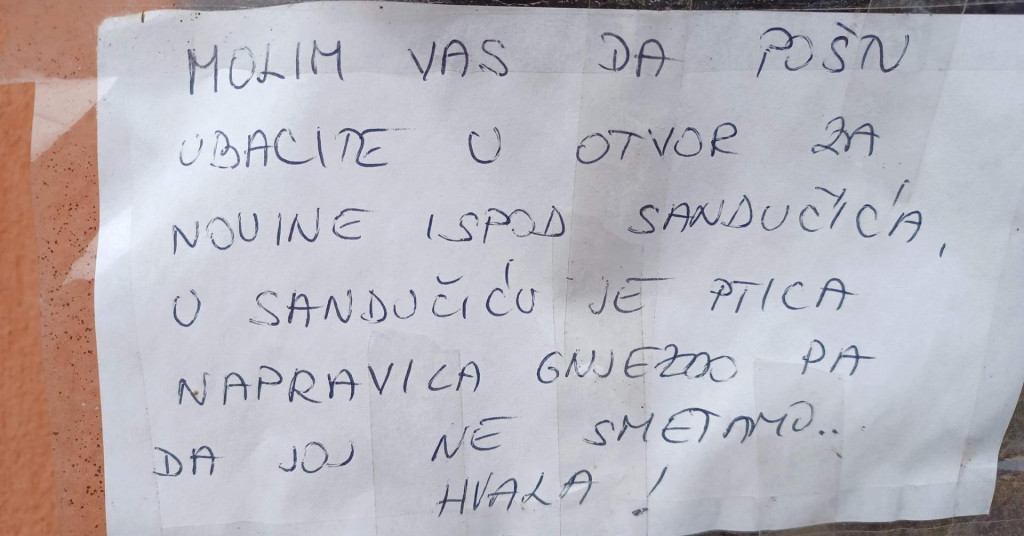 MOLIM VAS DA POŠTU
UBACITE U OTVOR ZA
NOVINE ISPOD SANDUČIĆA,
U SANDUČIĆU JE PTICA
NAPRAVILA GNJEZDO PA
DA JOJ NE SMETAMO..
HVALA !